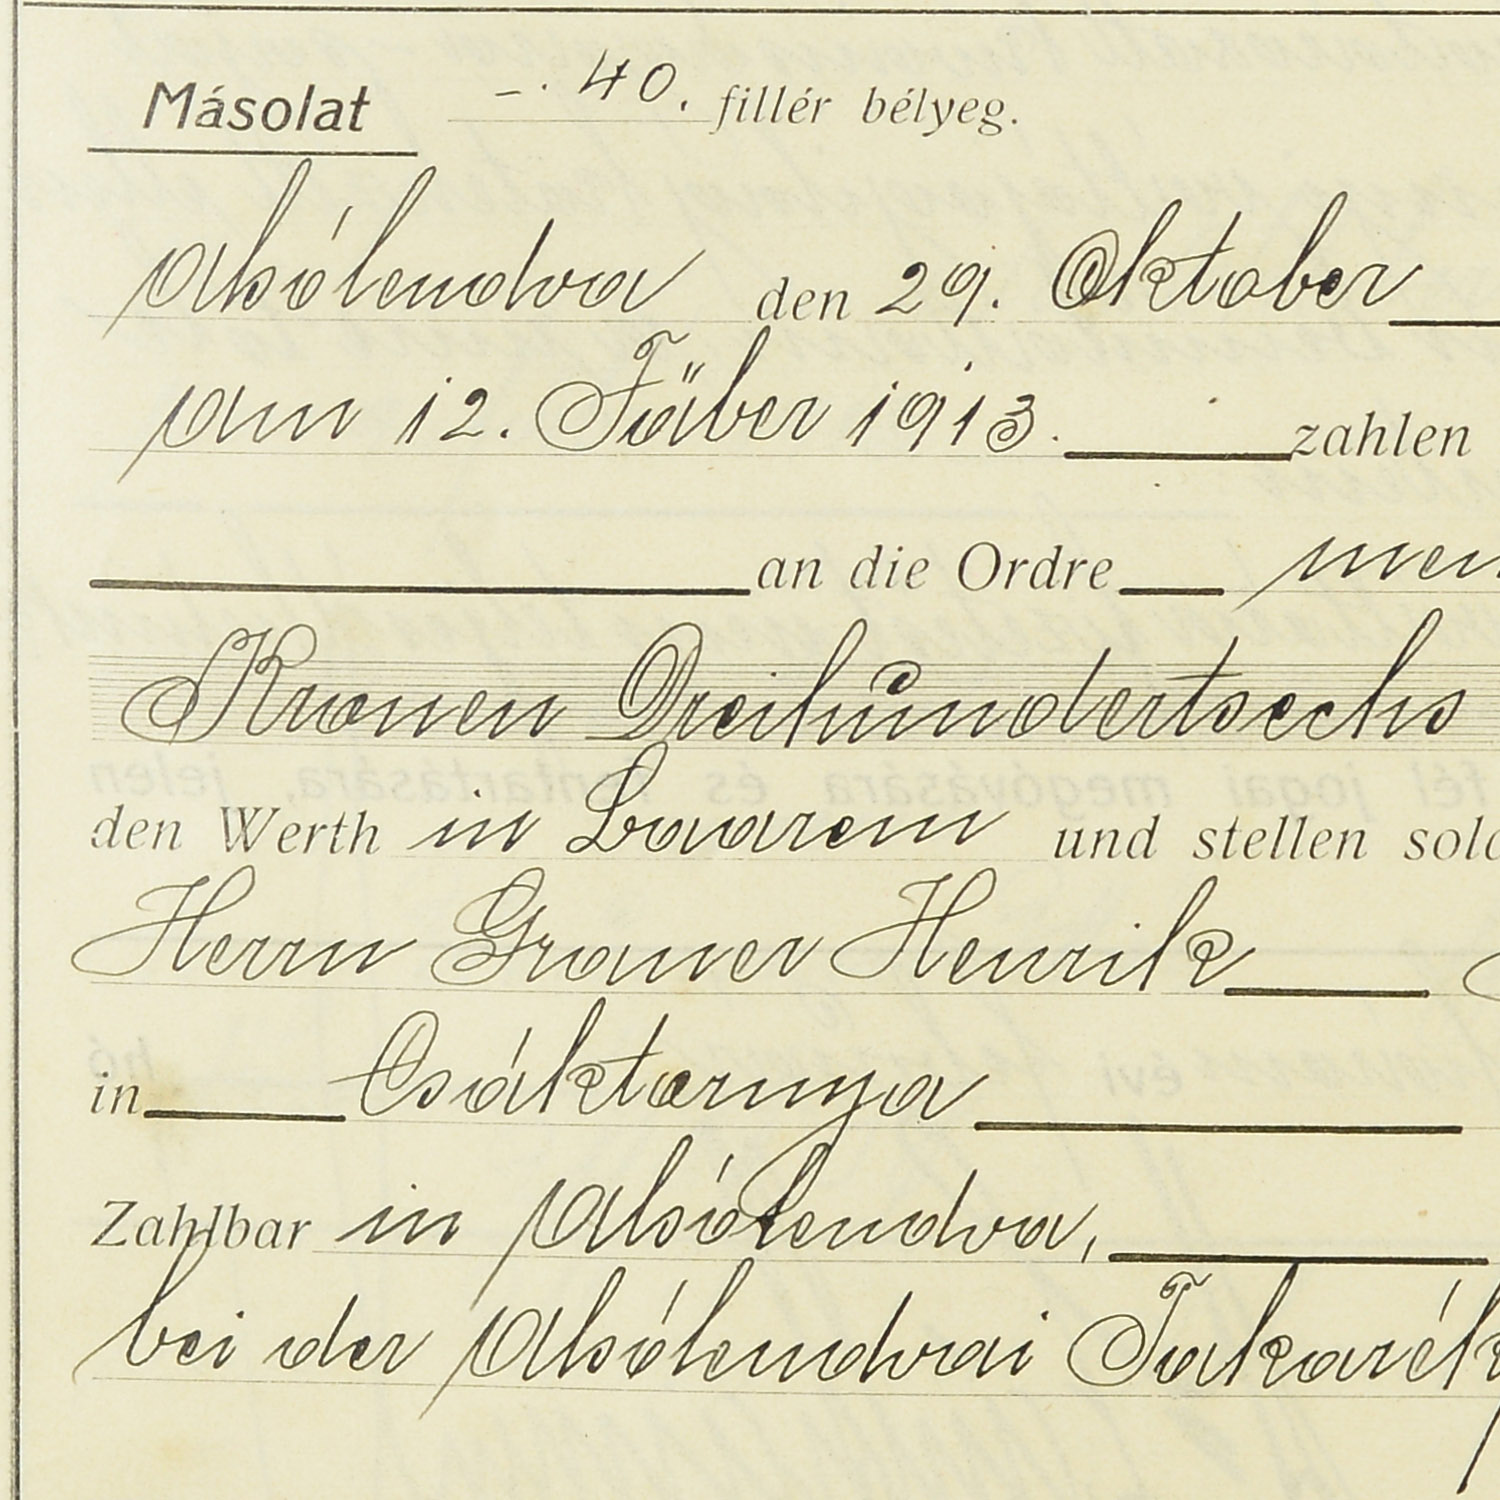 Másolat –. 40. fillér bélyeg.
Alsólendva den 29. Oktober
am 12. Fäber 1913. zahlen
an die Ordre mein
Kronen Dreihundertsechs
den Werth in Waaren und stellen solc
Herrn Graner Henrik
in Csáktornya
Zahlbar in Alsólendva,
bei der Alsólendvai Takarék